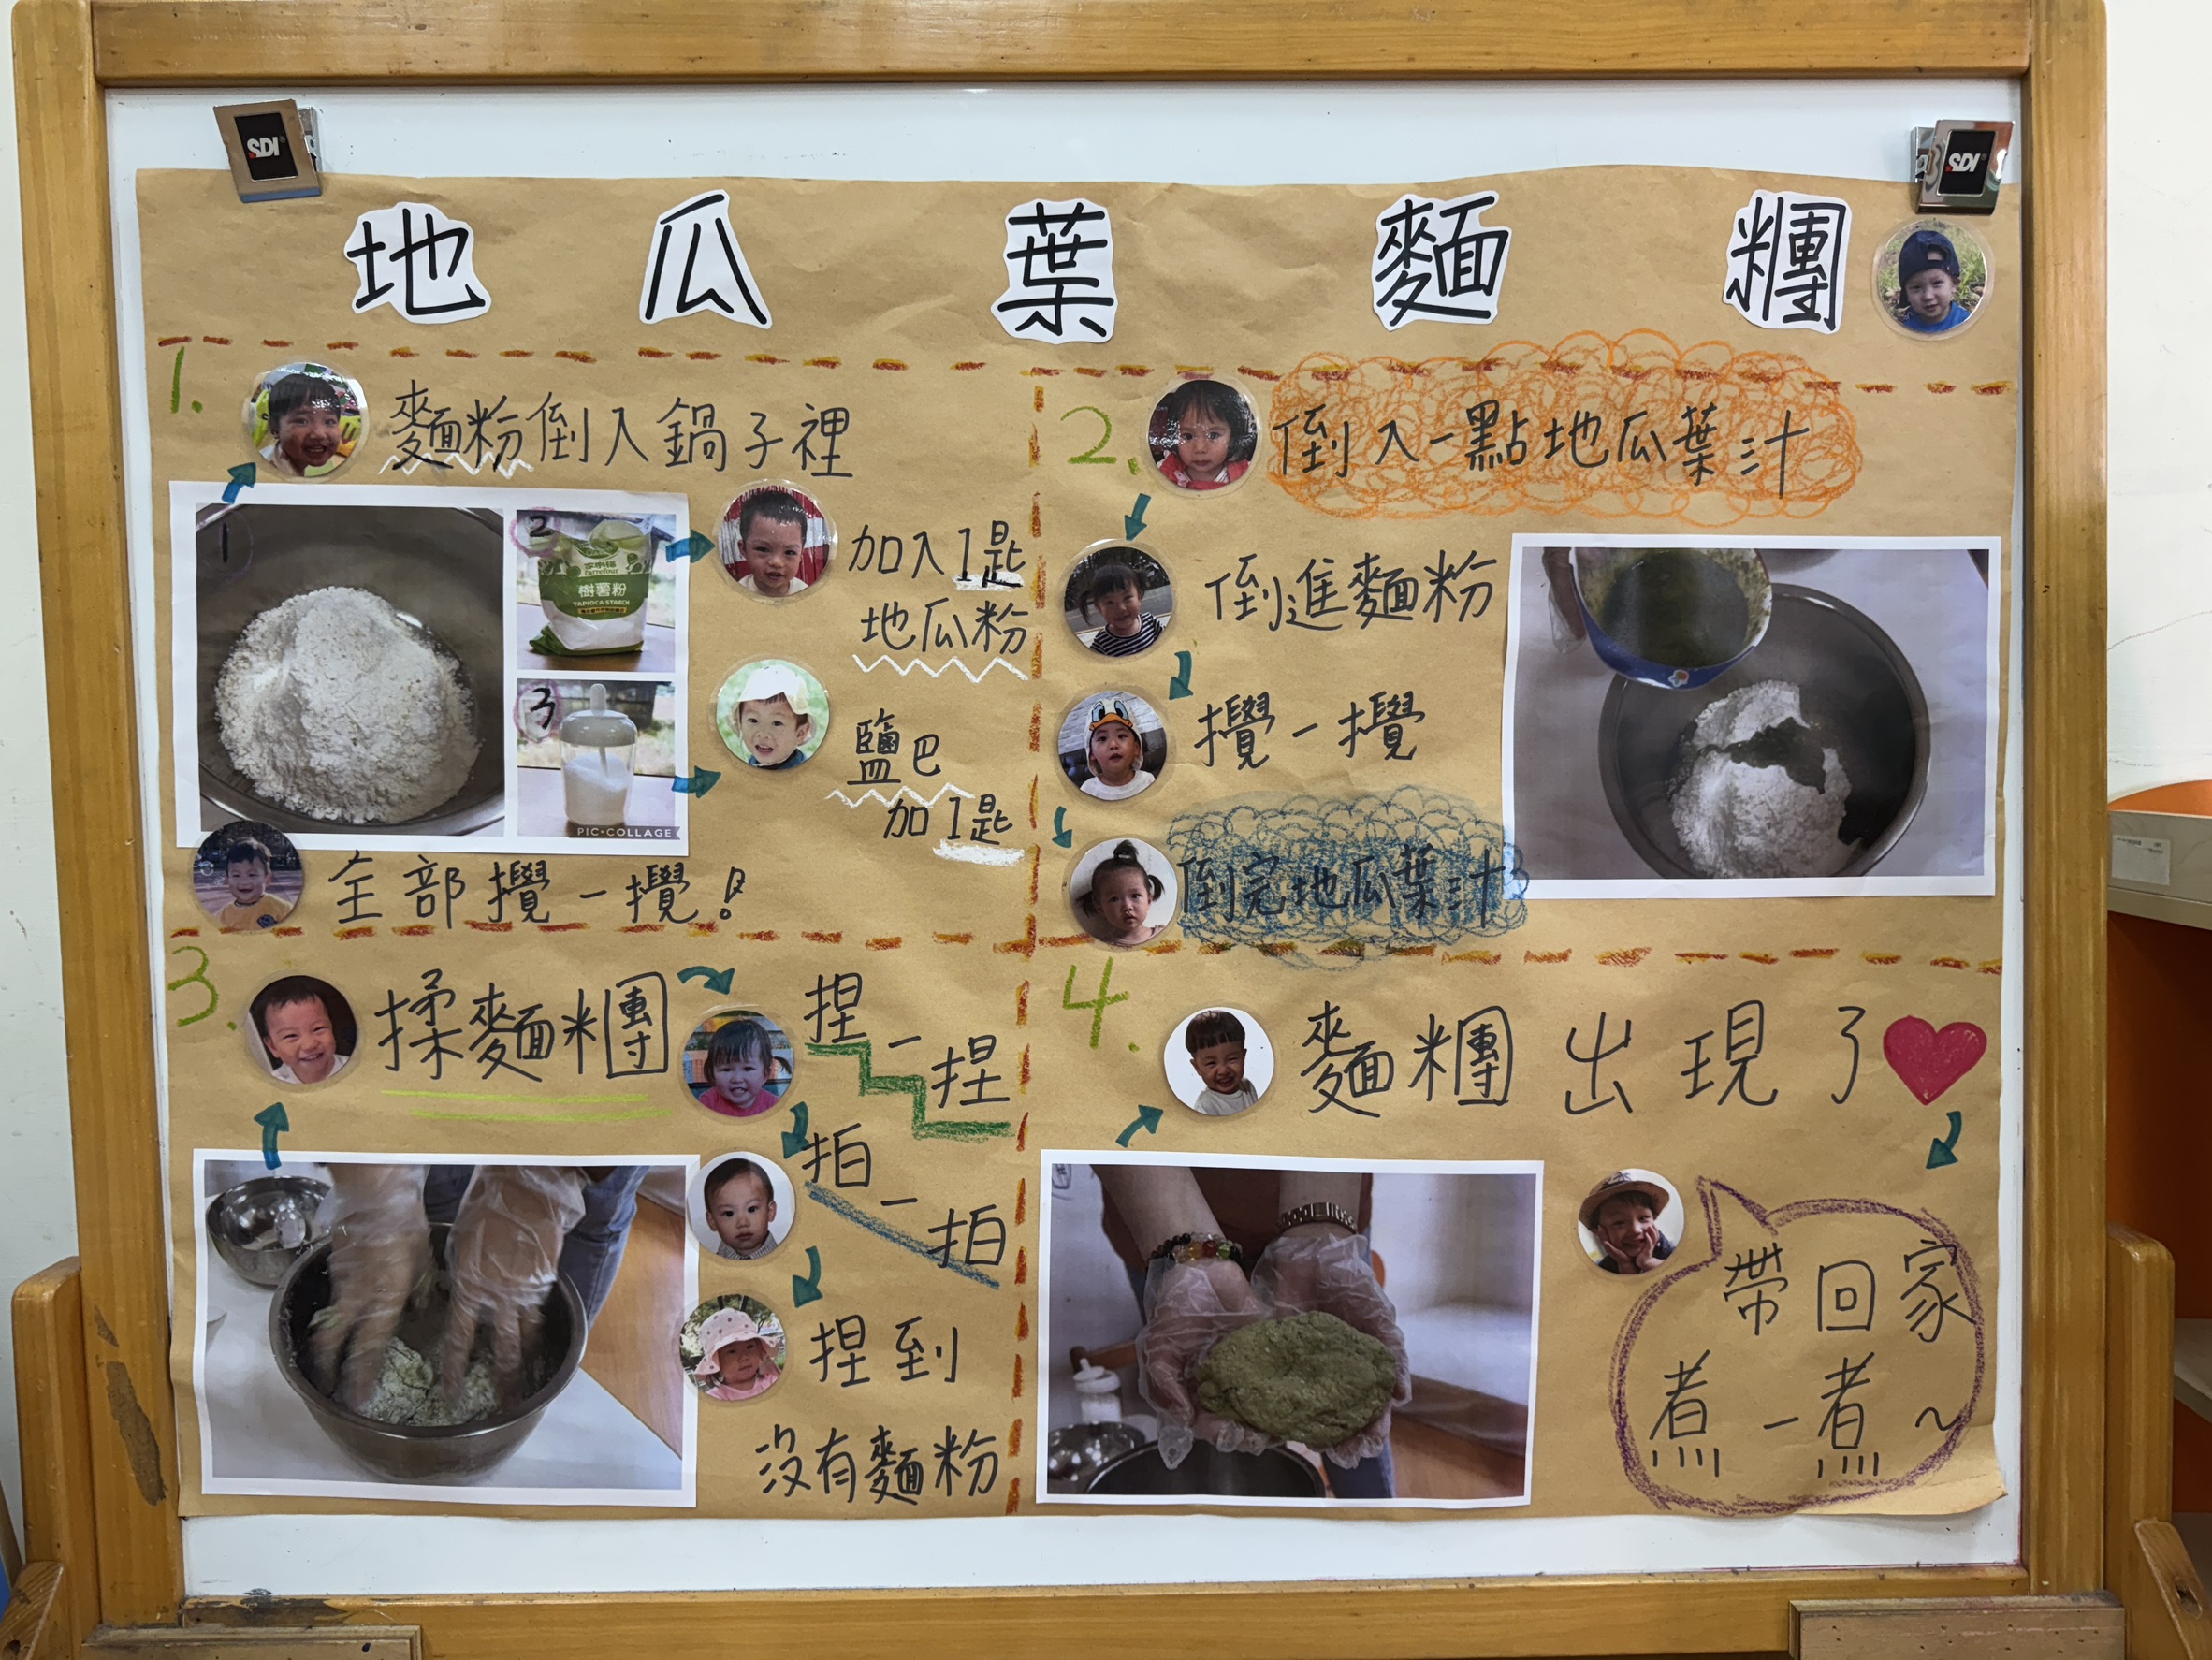 SDI
SDI
地瓜葉麵糰
1.
麵粉倒入鍋子裡
1
2
家樂福
Carrefour
樹薯粉
TAPIOCA STARCH
3
PIC•COLLAGE
加入1匙
地瓜粉
鹽巴
加1匙
全部攪一攪!
2.
倒入一點地瓜葉汁
倒進麵粉
攪一攪
倒完地瓜葉汁
3.
揉麵糰
捏一捏
拍一拍
捏到
沒有麵粉
4.
麵糰出現了
帶回家
煮一煮~